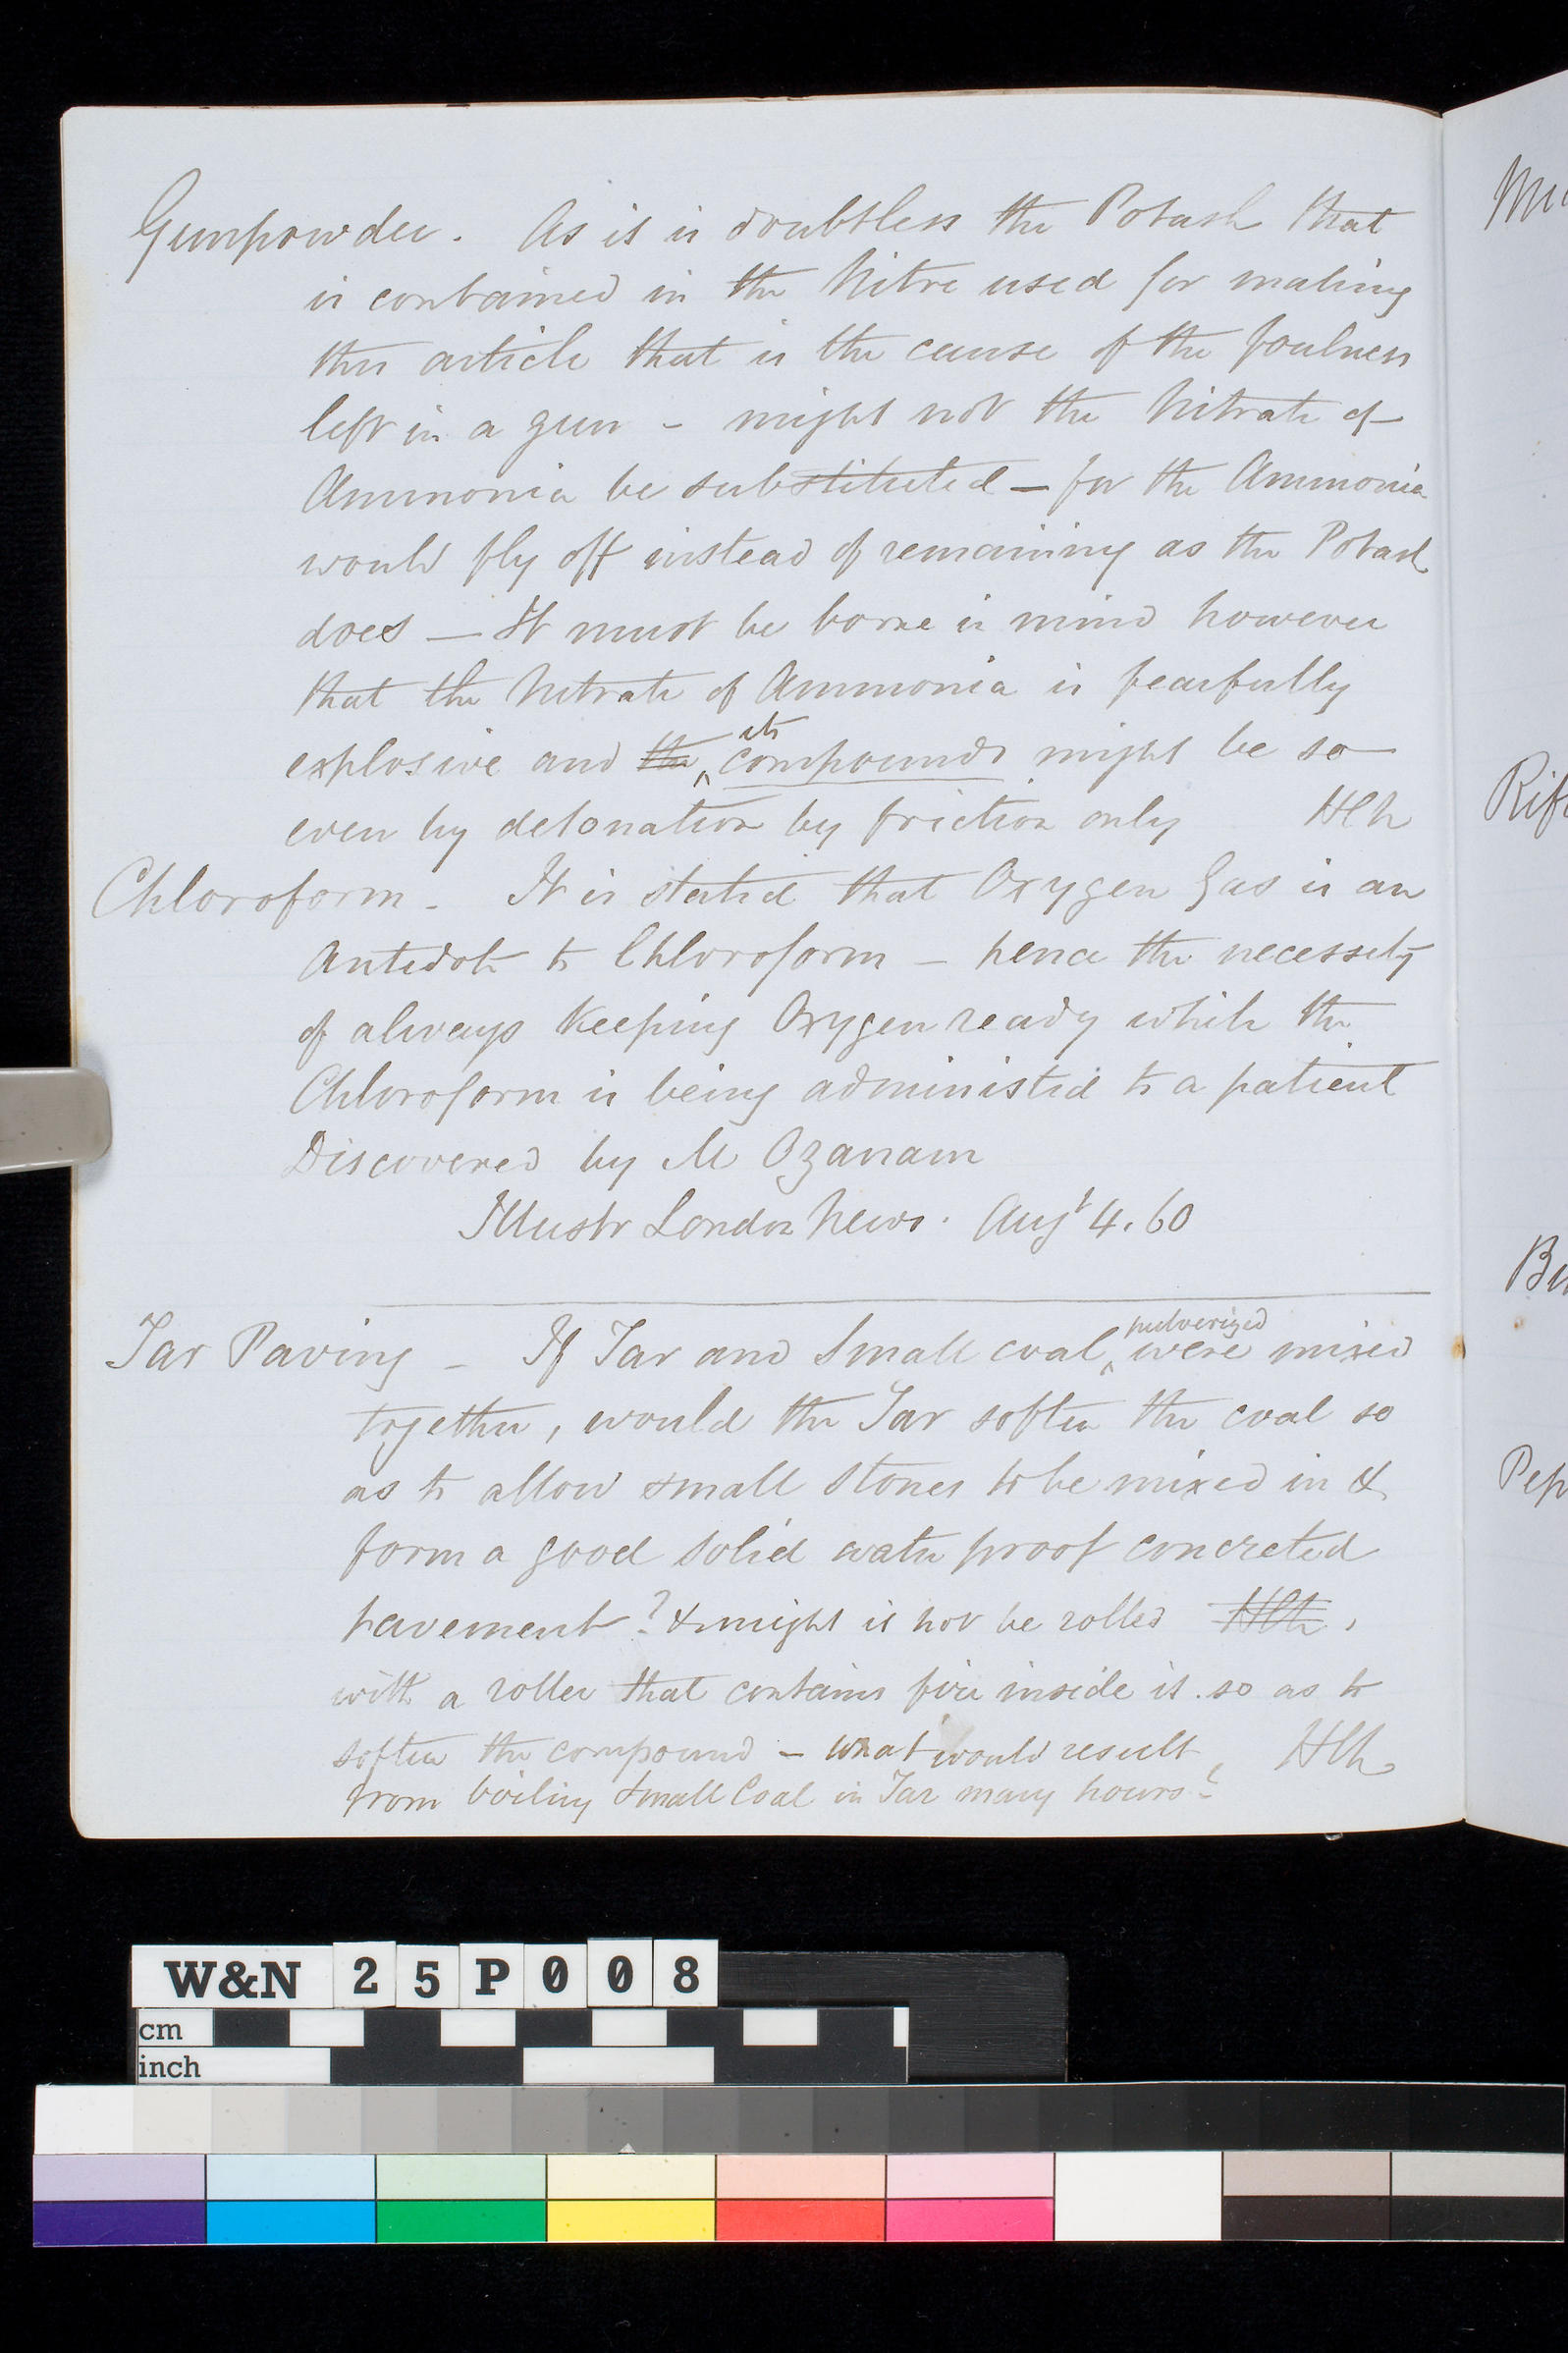 Gunpowder. As it is doubtless the Potash that
is contained in the Nitre used for making
this article that is the cause of the foulness
left in a gun - might not the Nitrate of
Ammonia be substituted - for the Ammonia
would fly off instead of remaining as the Potash
does - It must be borne in mind however
that the Nitrate of Ammonia is fearfully
explosive and the its compounds might be so
even by detonation by friction only HCN
Chloroform. It is stated that Oxygen Gas is an
Antidote to Chloroform - hence the necessity
of always Keeping Oxygen ready while the
Chloroform is being administed to a patient
Discovered by M Ozanam
Illustr London News. Augt 4. 60
Tar Paving - If Tar and Small coal pulverized were mixed
together, would the Tar soften the coal so
as to allow small stones to be mixed in &
form a good solid water proof concreted
pavement? & might it not be rolled HCN,
with a roller that contains fire inside it so as to
soften the compound - what would result HCN
from boiling small Coal in Tar many hours?
Mu
Rif
Bu
Pep
W&N 25P008
cm
inch